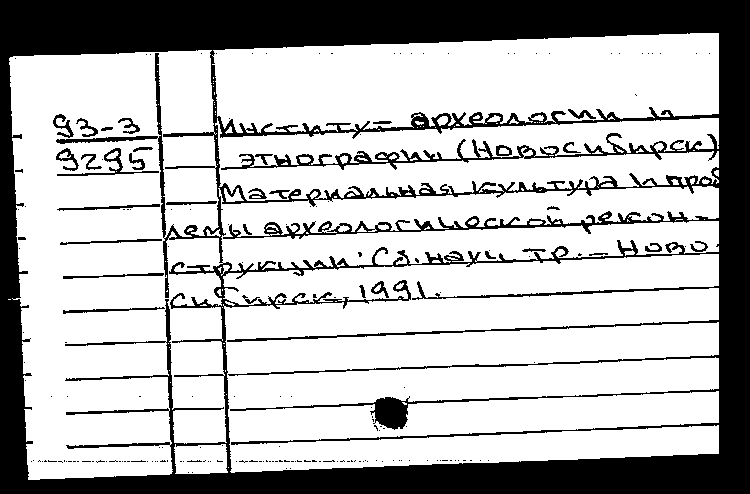 93-3
9295
Институт археологии и
этнографии (Новосибирск)
Материальная культура и проб
лемы археологической рекон-
струкции: Сб. науч. тр. – Ново-
сибирск, 1991.